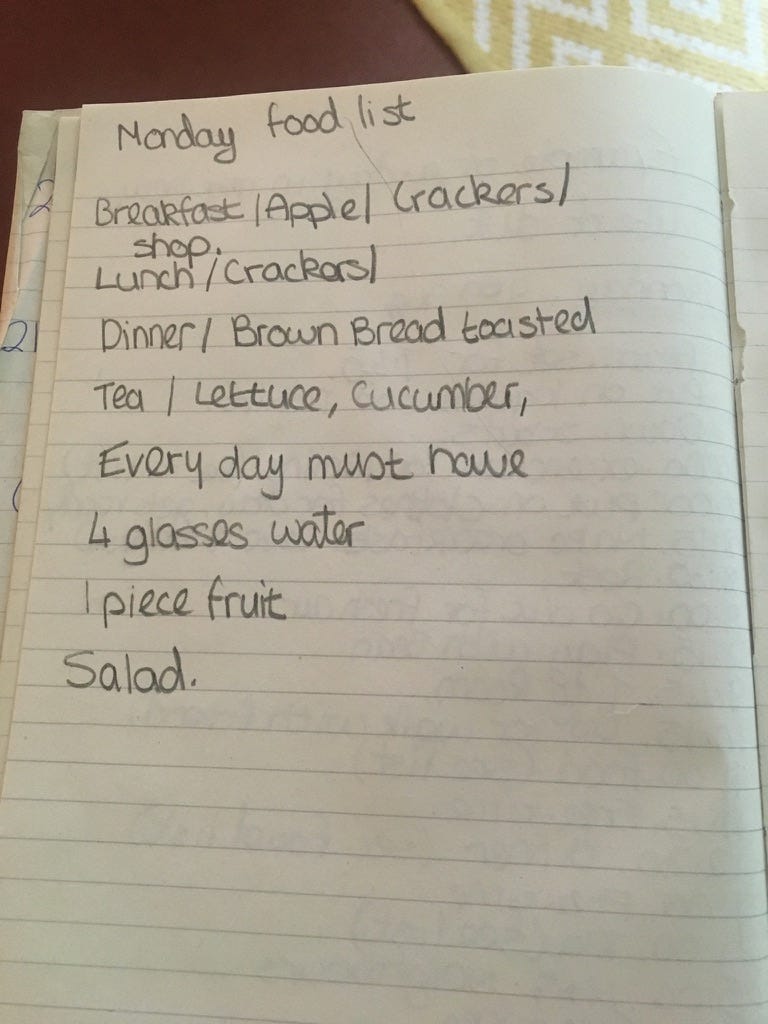 Monday food list
Breakfast /Apple/ Crackers/
shop.
Lunch /Crackers/
Dinner/ Brown Bread toasted
Tea / Lettuce, cucumber,
Every day must have
4 glasses water
1 piece fruit
Salad.
2
21